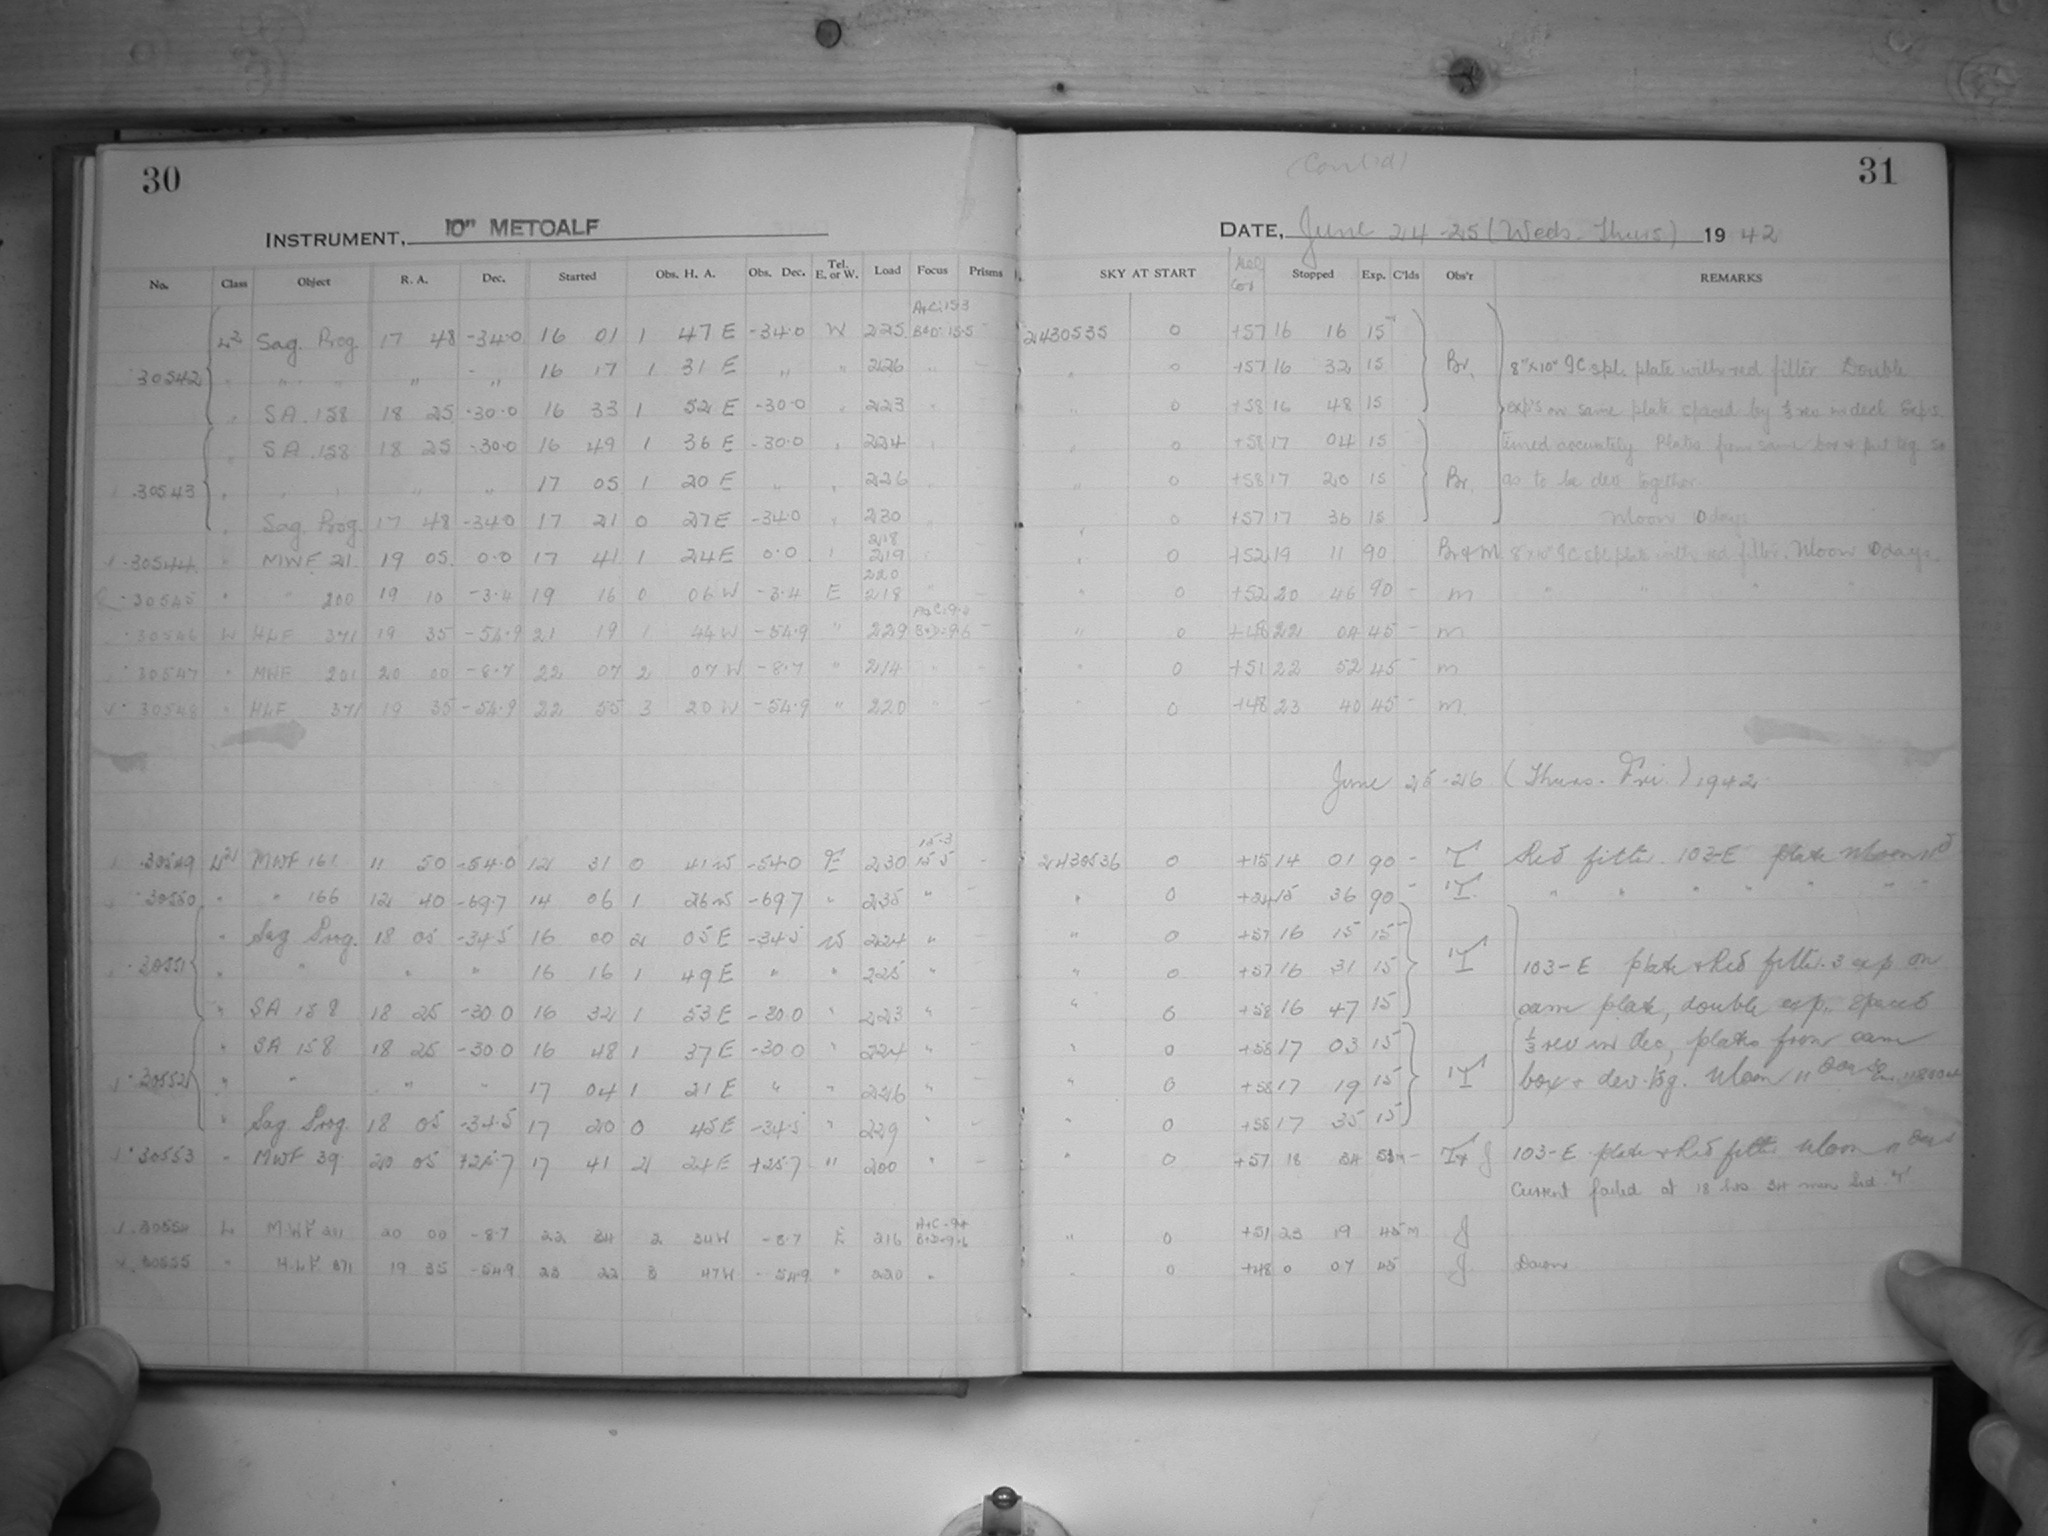 30
INSTRUMENT, 10" METCALF
No. Class Object R. A. Dec. Started Obs. H. A. Obs. Dec. Tel. E. or W. Load Focus Prisms
L2 Sag. Prog. 17 48 -34.0 16 01 1 47 E -34.0 W 225 A+C:15.3 B+D:15.5 -
30542 " " " " " 16 17 1 31 E " " 226 "
" SA.158 18 25 -30.0 16 33 1 52 E -30.0 " 223 "
" SA.158 18 25 -30.0 16 49 1 36 E -30.0 " 224 "
30543 " " " " " 17 05 1 20 E " " 226 "
" Sag. Prog. 17 48 -34.0 17 21 0 27 E -34.0 " 230 "
30544 " MWF 21 19 05 0.0 17 41 1 24 E 0.0 " 218 219 "
30545 " " 200 19 10 -3.4 19 16 0 06 W -3.4 E 220 218 "
30546 W HLF 371 19 35 -54.9 21 19 1 44 W -54.9 " 229 A+C:9.4 B+D:9.6 -
30547 " MWF 201 20 00 -8.7 22 07 2 07 W -8.7 " 214 "
30548 " HLF 371 19 35 -54.9 22 55 3 20 W -54.9 " 220 " -
30549 L2 MWF 161 11 50 -54.0 12 31 0 41 W -54.0 E 230 15.3 15.5 -
30550 " " 166 12 40 -69.7 14 06 1 26 W -69.7 " 235 " -
" Sag Prog. 18 05 -34.5 16 00 2 05 E -34.5 W 224 "
30551 " " " " 16 16 1 49 E " " 225 "
" SA 158 18 25 -30.0 16 32 1 53 E -30.0 " 223 "
" SA 158 18 25 -30.0 16 48 1 37 E -30.0 " 224 "
30552 " " " " 17 04 1 21 E " " 226 "
" Sag Prog. 18 05 -34.5 17 20 0 45 E -34.5 " 229 "
30553 " MWF 39 20 05 +25.7 17 41 2 24 E +25.7 " 200 " -
30554 L MWF 201 20 00 -8.7 22 34 2 34 W -8.7 E 216 A+C-9.4 B+D-9.6
30555 " HLF 371 19 35 -54.9 23 22 3 47 W -54.9 " 220 "
(Cont'd) 31
DATE, June 24-25 (Weds-Thurs) 1942
SKY AT START Hel. Cor Stopped Exp. C'lds Obs'r REMARKS
2430535 0 +57 16 16 15 -
" 0 +57 16 32 15 Br. 8"x10" IC spl. plate with red filter Double
" 0 +58 16 48 15 exp's on same plate spaced by ⅓ rev in decl. Exp's
" 0 +58 17 04 15 timed accurately. Plates from same box & put tog. so
" 0 +58 17 20 15 Br. as to be dev. together.
" 0 +57 17 36 15 Moon 10 days
" 0 +52 19 11 90 Br + M 8x10" IC spl. plate with red filter. Moon 10 days.
" 0 +52 20 46 90 - M " " " "
" 0 +48 22 04 45 - M
" 0 +51 22 52 45 - M
" 0 +48 23 40 45 - M
June 25-26 (Thurs. Fri.) 1942
2430536 0 +15 14 01 90 - T Red filter. 103-E plate Moon 11d
" 0 +24 15 36 90 - T " " " " " " "
" 0 +57 16 15 15 -
" 0 +57 16 31 15 T 103-E plate & Red filter. 3 exp on
" 0 +58 16 47 15 same plate, double exp. spaced
" 0 +58 17 03 15 ⅓ rev in dec, plates from same
" 0 +58 17 19 15 T box & dev. tog. Moon 11 days
" 0 +58 17 35 15
" 0 +57 18 34 53 M - T + J 103-E plate & Red filter Moon 11 days
Current failed at 18 hrs 34 min Sid. T.
" 0 +51 23 19 45 M J
" 0 +48 0 07 45 J Dawn